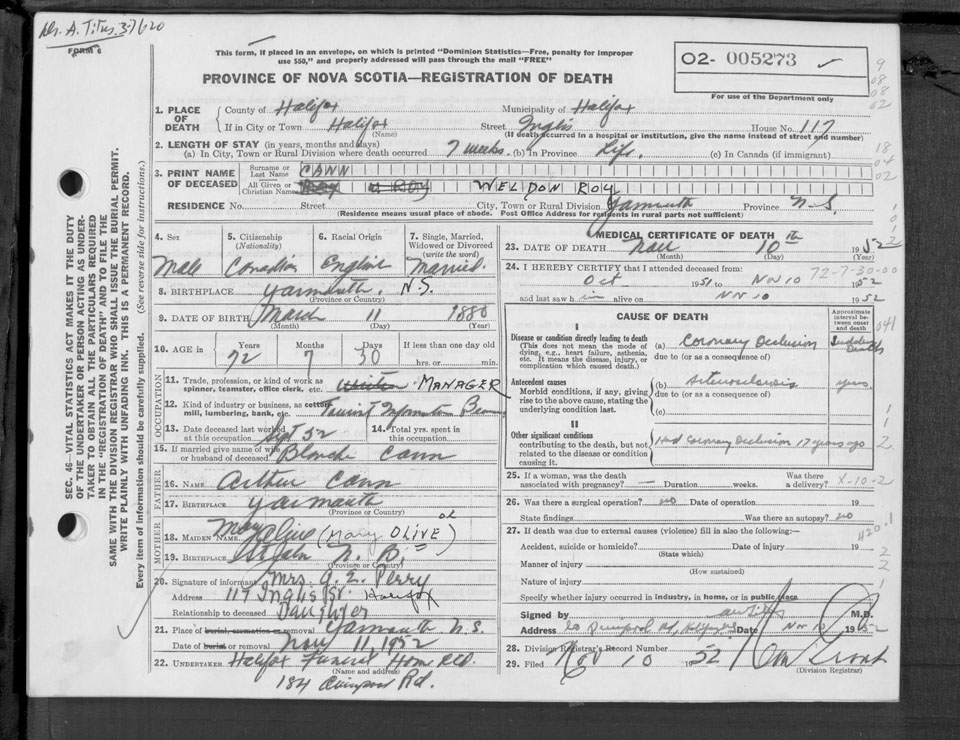 Dr. A. Titus. 3-7620
FORM 6
This form, if placed in an envelope, on which is printed "Dominion Statistics—Free, penalty for improper
use $50," and properly addressed will pass through the mail "FREE"
PROVINCE OF NOVA SCOTIA—REGISTRATION OF DEATH
02- 005273 ✓
For use of the Department only
SEC. 46—VITAL STATISTICS ACT MAKES IT THE DUTY
OF THE UNDERTAKER OR PERSON ACTING AS UNDER-
TAKER TO OBTAIN ALL THE PARTICULARS REQUIRED
IN THE "REGISTRATION OF DEATH" AND TO FILE THE
SAME WITH THE DIVISION REGISTRAR WHO SHALL ISSUE THE BURIAL PERMIT.
WRITE PLAINLY WITH UNFADING INK. THIS IS A PERMANENT RECORD.
Every item of information should be carefully supplied. (See reverse side for instructions.)
1. PLACE OF DEATH County of Halifax Municipality of Halifax
If in City or Town Halifax Street Inglis House No. 117
(Name) (If death occurred in a hospital or institution, give the name instead of street and number)
2. LENGTH OF STAY (in years, months and days)
(a) In City, Town or Rural Division where death occurred 7 weeks. (b) In Province Life. (c) In Canada (if immigrant)
3. PRINT NAME OF DECEASED Surname or Last Name CANN
All Given or Christian Names WELDON ROY
RESIDENCE No. Street City, Town or Rural Division Yarmouth Province N.S.
(Residence means usual place of abode. Post Office Address for residents in rural parts not sufficient)
4. Sex Male
5. Citizenship (Nationality) Canadian
6. Racial Origin English
7. Single, Married, Widowed or Divorced (write the word) Married.
8. BIRTHPLACE Yarmouth, N.S.
(Province or Country)
9. DATE OF BIRTH March 11 1880
(Month) (Day) (Year)
10. AGE Years 72 Months 7 Days 30 If less than one day old
hrs. or min.
OCCUPATION
11. Trade, profession, or kind of work as spinner, teamster, office clerk, etc. MANAGER
12. Kind of industry or business, as cotton mill, lumbering, bank, etc. Tourist Information Bureau
13. Date deceased last worked at this occupation Sept 52 14. Total yrs. spent in this occupation
15. If married give name of wife or husband of deceased Blanche Cann
FATHER
16. Name Arthur Cann
17. Birthplace Yarmouth
(Province or Country)
MOTHER
18. Maiden Name (Mary OLIVE)
19. Birthplace St John N. B.
(Province or Country)
20. Signature of informant Mrs. G. E. Perry
Address 117 Inglis St. Halifax
Relationship to deceased Daughter
21. Place of burial, cremation or removal Yarmouth N.S.
Date of burial or removal Nov 11 1952
22. UNDERTAKER Halifax Funeral Home Ltd.
(Name and address)
184 Quinpool Rd.
MEDICAL CERTIFICATE OF DEATH
23. DATE OF DEATH Nov 10th 1952
(Month) (Day) (Year)
72-7-30-00
24. I HEREBY CERTIFY that I attended deceased from:
Oct 1951 to Nov 10 1952
and last saw him alive on Nov 10 1952
CAUSE OF DEATH
Approximate interval between onset and death
I
Disease or condition directly leading to death
(This does not mean the mode of dying, e.g., heart failure, asthenia, etc. It means the disease, injury, or complication which caused death.)
(a) Coronary Occlusion Sudden Death
due to (or as a consequence of)
Antecedent causes
Morbid conditions, if any, giving rise to the above cause, stating the underlying condition last.
(b) Arteriosclerosis years
due to (or as a consequence of)
(c)
II
Other significant conditions
contributing to the death, but not related to the disease or condition causing it.
Had coronary occlusion 17 years ago
25. If a woman, was the death associated with pregnancy? — Duration weeks. Was there a delivery? X-10-2
26. Was there a surgical operation? no Date of operation 19
State findings Was there an autopsy? no
27. If death was due to external causes (violence) fill in also the following:—
Accident, suicide or homicide? Date of injury 19
(State which)
Manner of injury
(How sustained)
Nature of injury
Specify whether injury occurred in industry, in home, or in public place.
Signed by M.D.
Address Date Nov 10 1952
28. Division Registrar's Record Number
29. Filed Nov 10 1952
(Division Registrar)